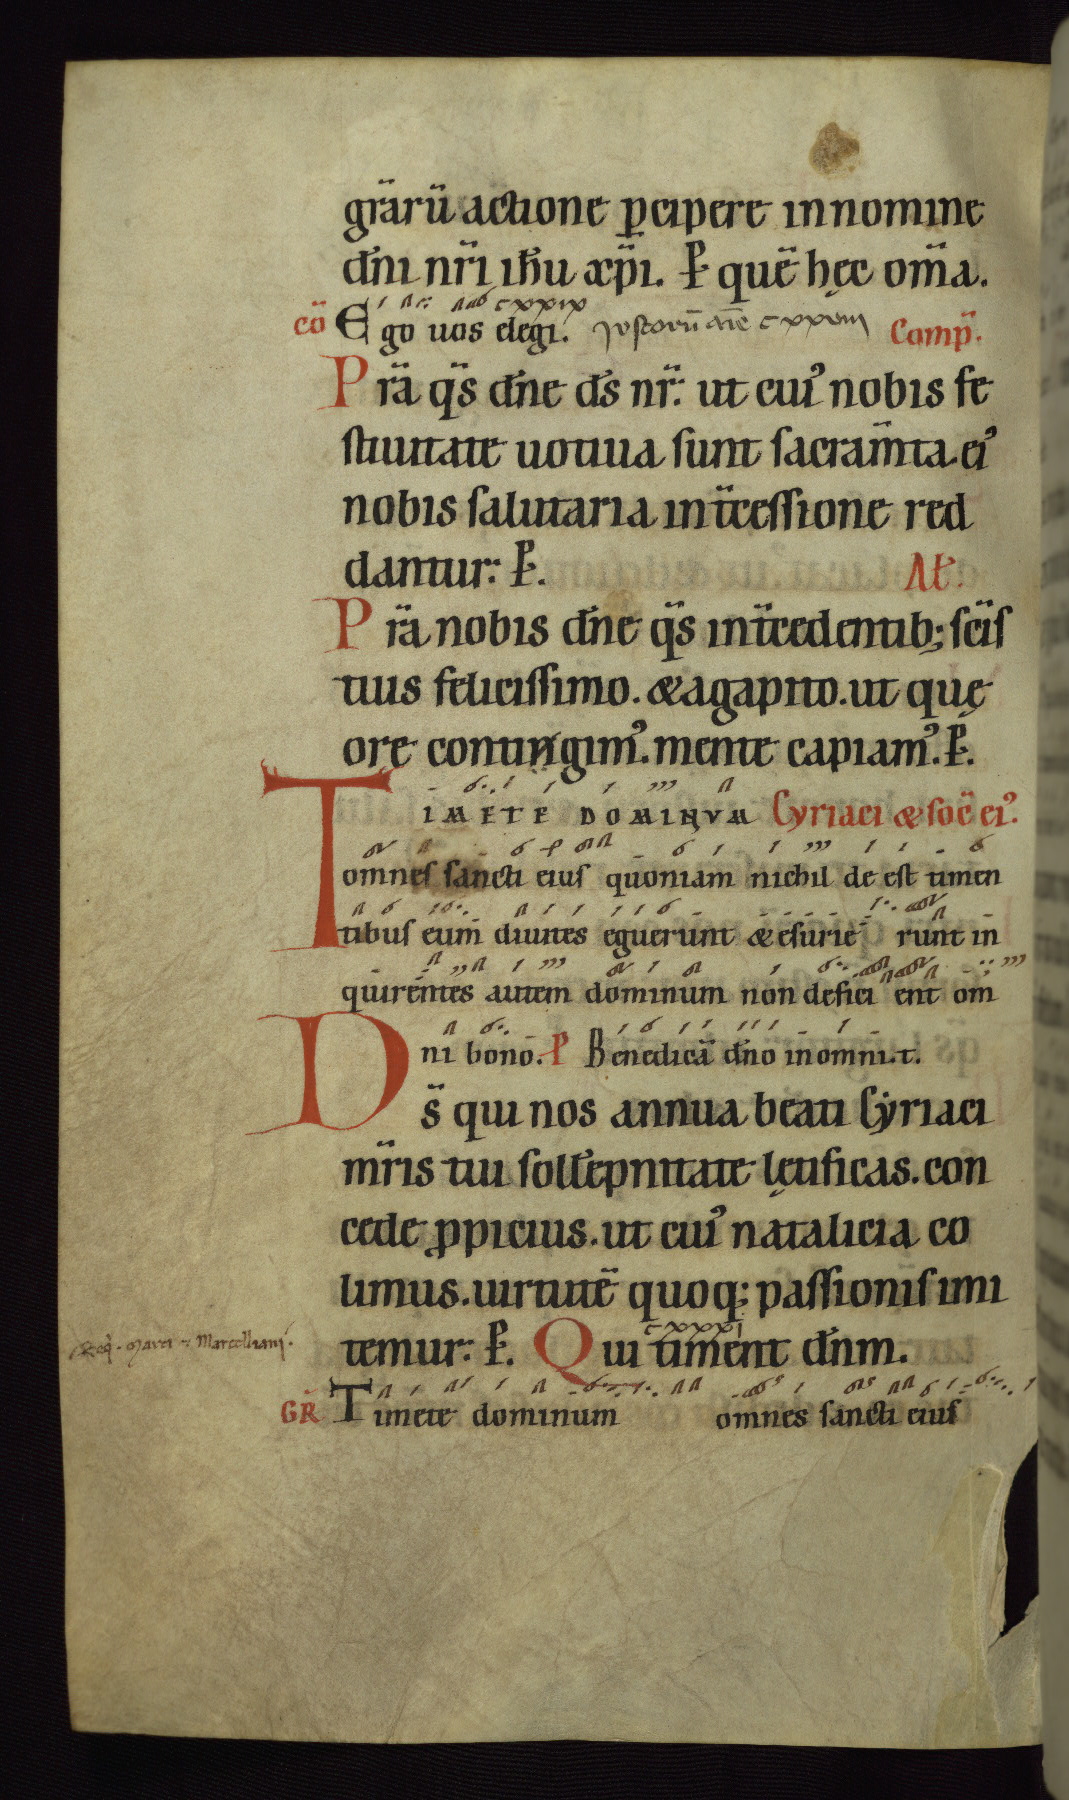 gr̄arū actione ꝑcipere in nomine
dn̄i nr̄i ih̄u xp̄i. P̵ quē hęc om̄a.
cō Ego uos elegi. cxxix Iustorū aīe cxxviii Comp̄.
Pr̄a qs̄ dn̄e ds̄ nr̄: ut eiuꝰ nobis fe
stiuitate uotiua sunt sacram̄ta. eiꝰ
nobis salutaria int̄cessione red
dantur: P̵. Al̵.
Pr̄a nobis dn̄e qs̄ int̄cedentib; sc̄is
tuis felicissimo. & agapito. ut quę
ore contingimꝰ. mente capiamꝰ. P̵.
TIMETE DOMINVM Cyriaci & soc̄ eiꝰ.
omnes sancti eius quoniam nichil de est timen
tibus eum diuites eguerunt & esurie runt in
quirentes autem dominum non defici ent om̄
ni bono. P̵ Benedicā dn̄o in omni. t.
Ds̄ qui nos annua beati Cyriaci
mr̄is tui soll̄epnitate lętificas. con
cede ꝓpicius. ut eiuꝰ natalicia co
limus. uirtutē quoq; passionis imi
temur: P̵. Qui timent dn̄m. cxxxi
Req̄. Marci ⁊ Marcelliani.
GR̄ Timete dominum omnes sancti eius